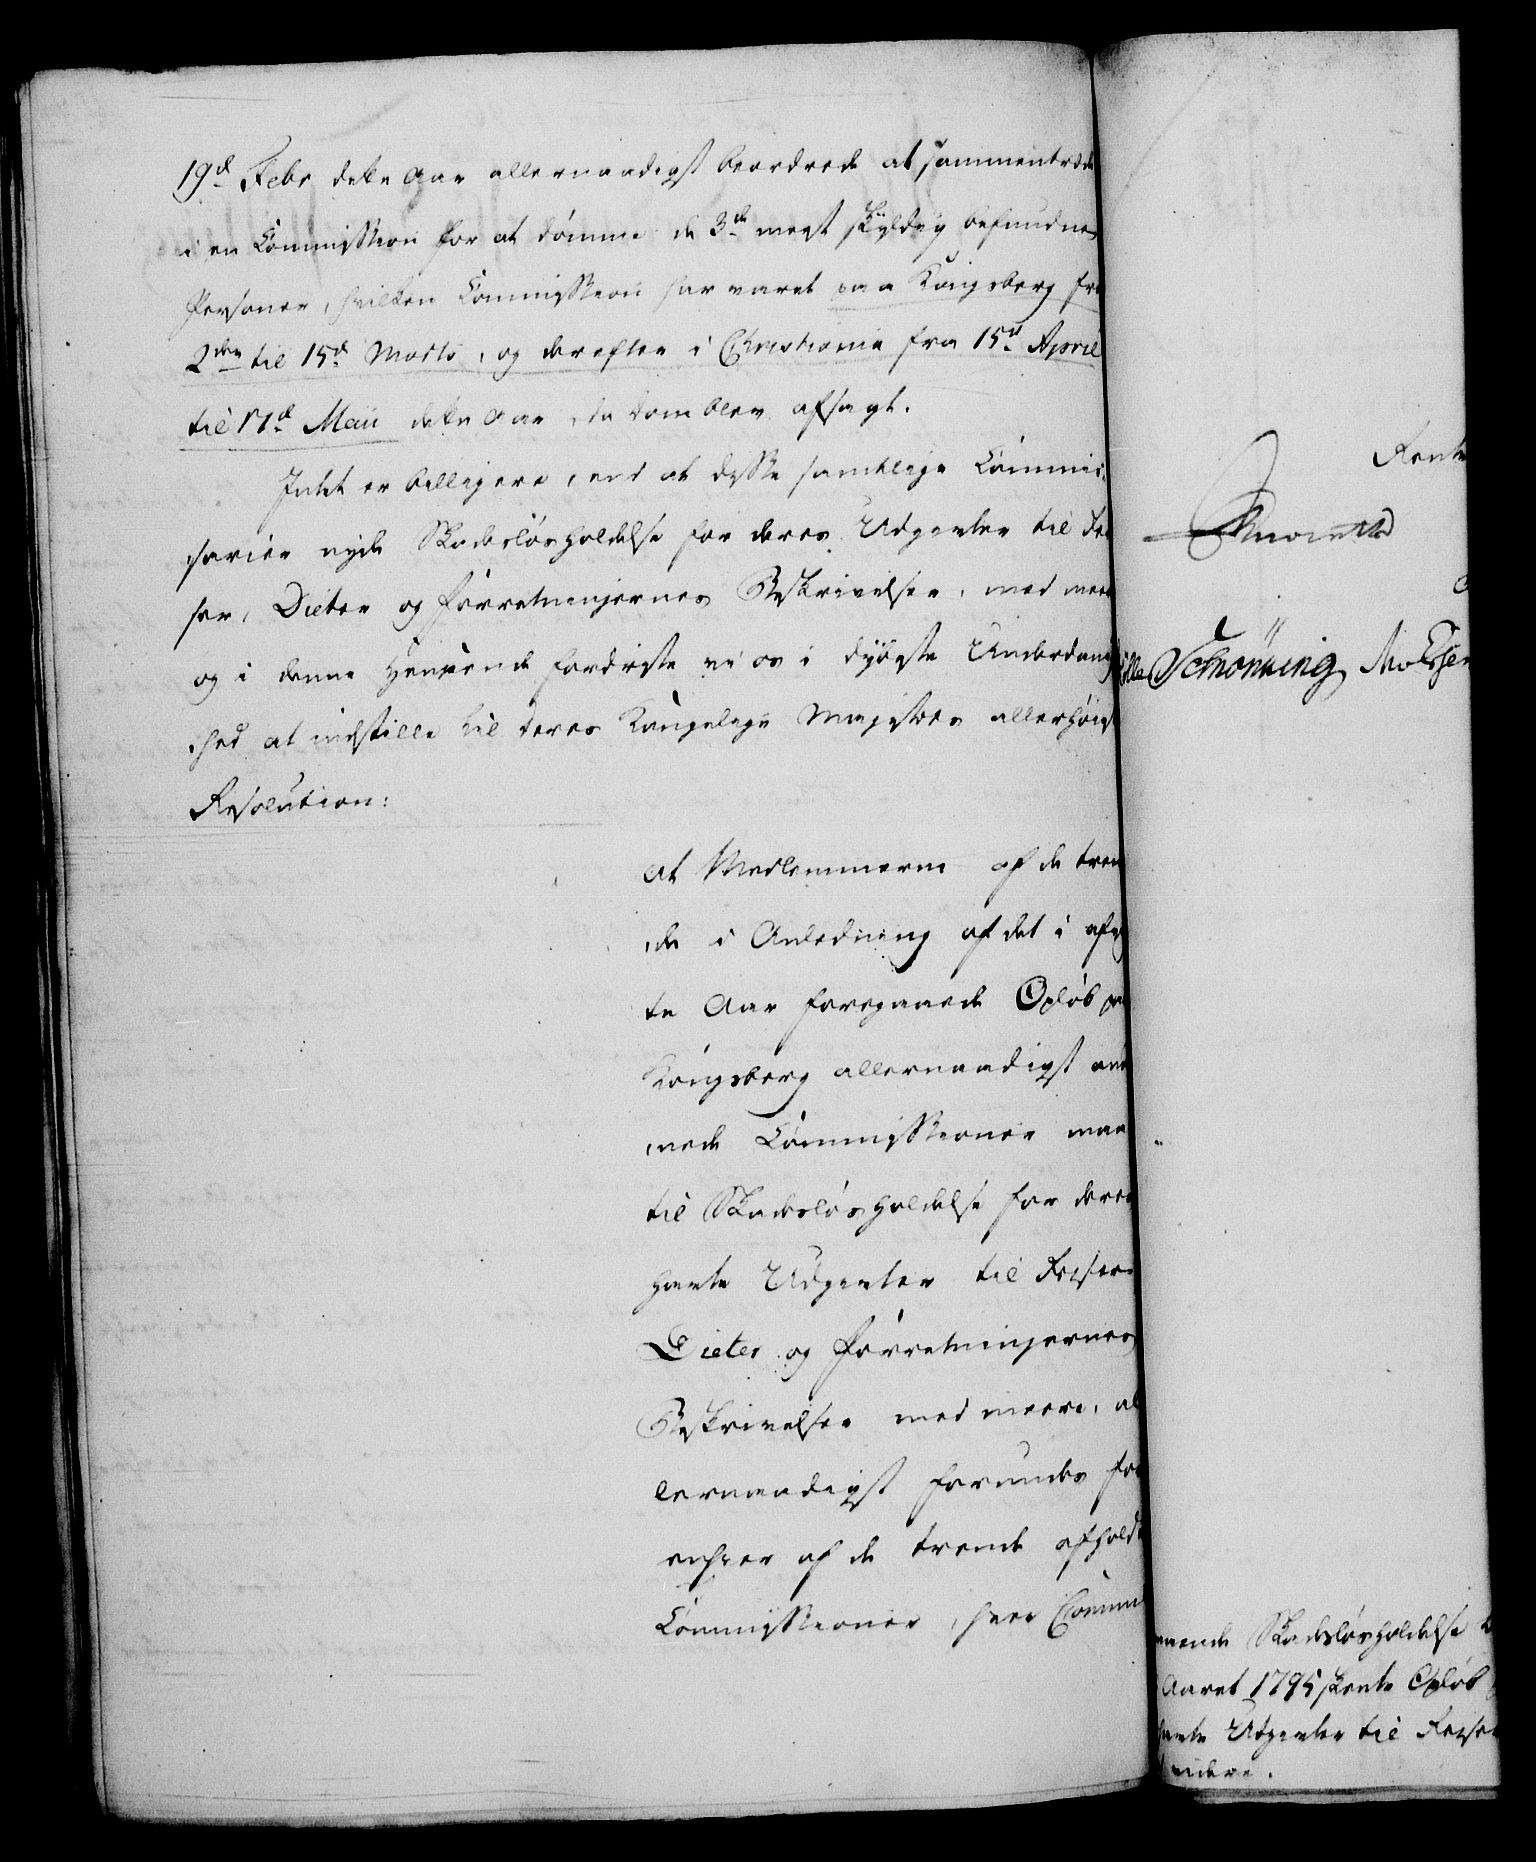 19d Febr dette Aar allernaadigst beordrede at sammentræde
i en Commission for at dømme de 3de meest skyldig befundne
Personer, hvilken Commission har varet paa Kongsberg fra
2den til 15d Marts, og derefter i Christiania fra 15d April
til 17d Maii dette Aar, da Dom blev afsagt.
Intet er billigere, end at disse samtlige Commis-
sarier nyde Skadesløsholdelse for deres Udgivter til Rei-
ser, Dieter og Forretningernes Beskrivelser, med meer
og i denne Henseende fordriste vi os i dybeste Underdanig-
hed at indstille til Deres Kongelige Majestæts allerhøieste
Resolution:
at Medlemmerne af de tren-
de i Anledning af det i afvig-
te Aar foregaaede Opløb paa
Kongsberg allernaadigst anord-
nede Commissioner maae
til Skadesløsholdelse for deres
havte Udgivter til Reiser
Dieter og Forretningernes
Beskrivelser med meere, al-
lernaadigst forundes for
enhver af de trende afholdte
Commissioner, hver Comm
Rente
Schønning Molzen
Skadesløsholdelse
Aaret 1795 skeete Opløb
havte Udgivter til Reiser
videre.